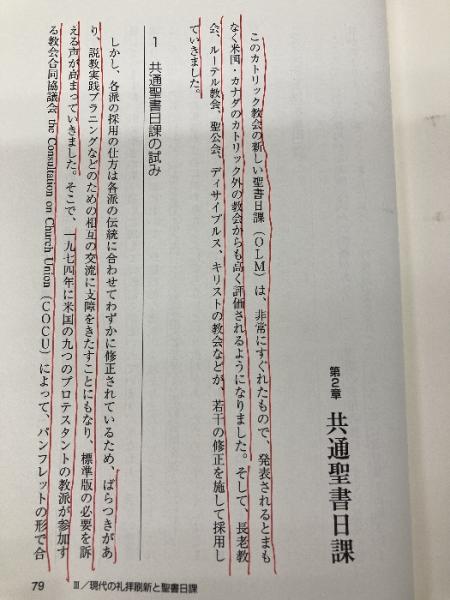 第2章 共通聖書日課
このカトリック教会の新しい聖書日課（OLM）は、非常にすぐれたもので、発表されるとまも
なく米国・カナダのカトリック外の教会からも高く評価されるようになりました。そして、長老教
会、ルーテル教会、聖公会、ディサイプルス、キリストの教会などが、若干の修正を施して採用し
ていきました。
1 共通聖書日課の試み
しかし、各派の採用の仕方は各派の伝統に合わせてわずかに修正されているため、ばらつきがあ
り、説教実践プラニングなどのための相互の交流に支障をきたすことにもなり、標準版の必要を訴
える声が高まっていきました。そこで、一九七四年に米国の九つのプロテスタントの教派が参加す
る教会合同協議会 the Consultation on Church Union（COCU）によって、パンフレットの形で合
79 Ⅲ／現代の礼拝刷新と聖書日課